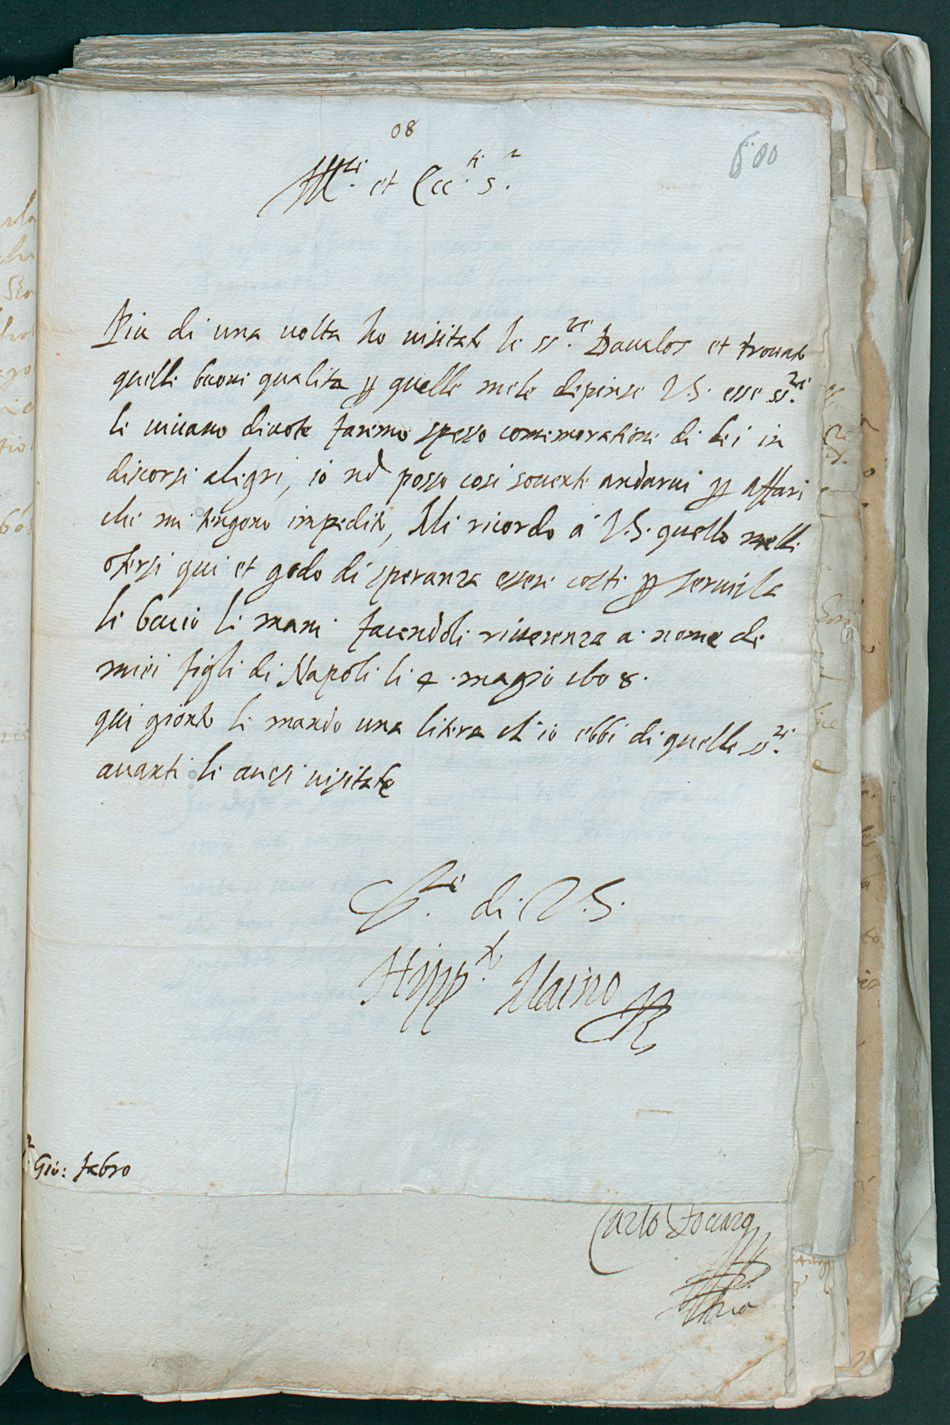 08
600
M.re et Ecc.te S.r
Piu di una uolta ho uisitato le ss.re Daualos et trouato
quelle buone qualita p quelle mele depinse V.S. esse ss.re
le uiuano diuote faremo spesso comemoratione di lei in
discorsi alegri, io nō posso cosi souente andarui p affari
che mi tengono impedito, Mi ricordo a V.S. quello melli
ofersi qui et godo di speranza essere costi p seruirla
li bacio le mani facendoli riuerenza a nome de
miei figli di Napoli li 4 magio 1608.
qui gionto li mando una litera ch io ebbi di quelle ss.re
auanti le auesi uisitate
S.re di V.S.
Hipp.to
Gio: fabro
Carlo